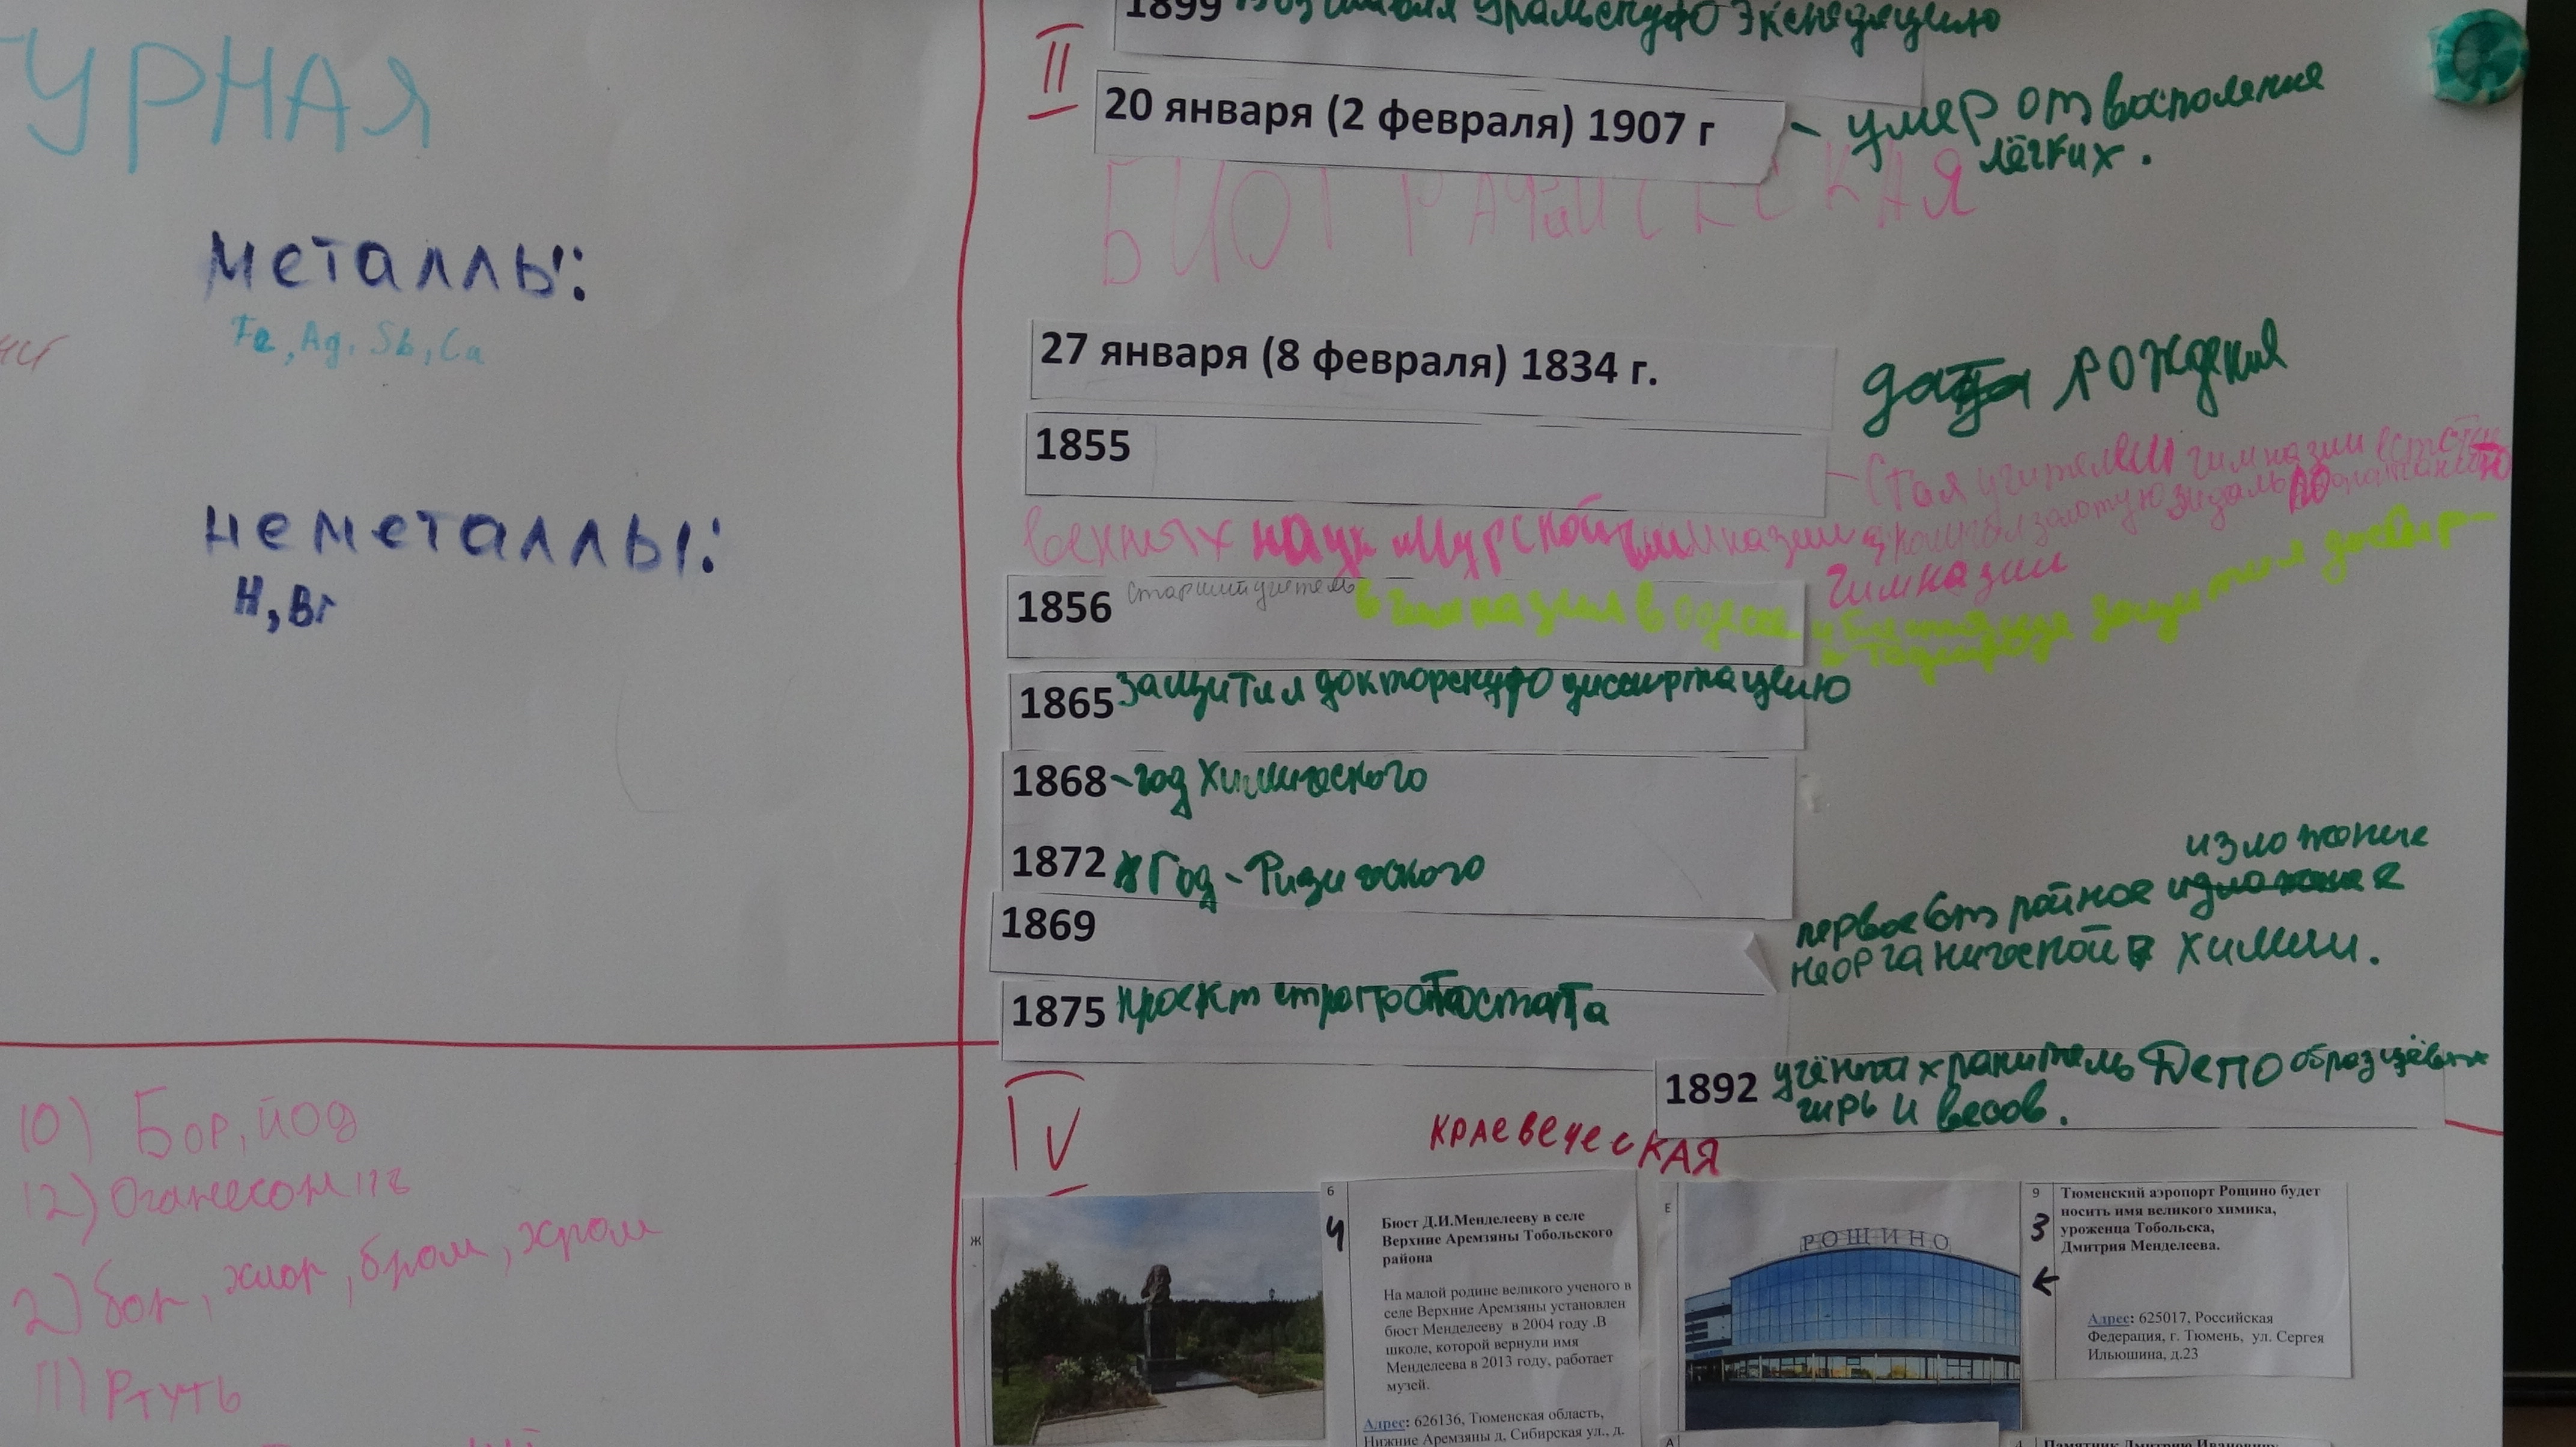 УРНАЯ
металлы:
Fe, Ag, Sb, Ca
неметаллы:
H, Br
10) Бор, йод
12) Оганесон 118
2) бор, хлор, бром, хром
11) Ртуть
1899 Уральскую экспедицию
II
20 января (2 февраля) 1907 г - умер от восполения
лёгких.
БИОГРАФИЧЕСКАЯ
27 января (8 февраля) 1834 г. дата рождения
1855
- Стал учителем гимназии естест
венных наук
гимназии
1856 старший учитель в гимназия в Одессе
1865 защитил докторскую диссиртацию
1868 - год химического
1872 Год - Физического
1869
изложение
первое
неорганической химии.
1875 проект
1892 учёный хранитель Депо образцёвых
гирь и весов.
IV
КРАЕВЕЧЕСКАЯ
Ж
6
4
Бюст Д.И.Менделееву в селе
Верхние Аремзяны Тобольского
района
На малой родине великого ученого в
селе Верхние Аремзяны установлен
бюст Менделееву в 2004 году .В
школе, которой вернули имя
Менделеева в 2013 году, работает
музей.
Адрес: 626136, Тюменская область,
Нижние Аремзяны д, Сибирская ул., д.
Е
РОЩИНО
9
3
←
Тюменский аэропорт Рощино будет
носить имя великого химика,
уроженца Тобольска,
Дмитрия Менделеева.
Адрес: 625017, Российская
Федерация, г. Тюмень, ул. Сергея
Ильюшина, д.23
А